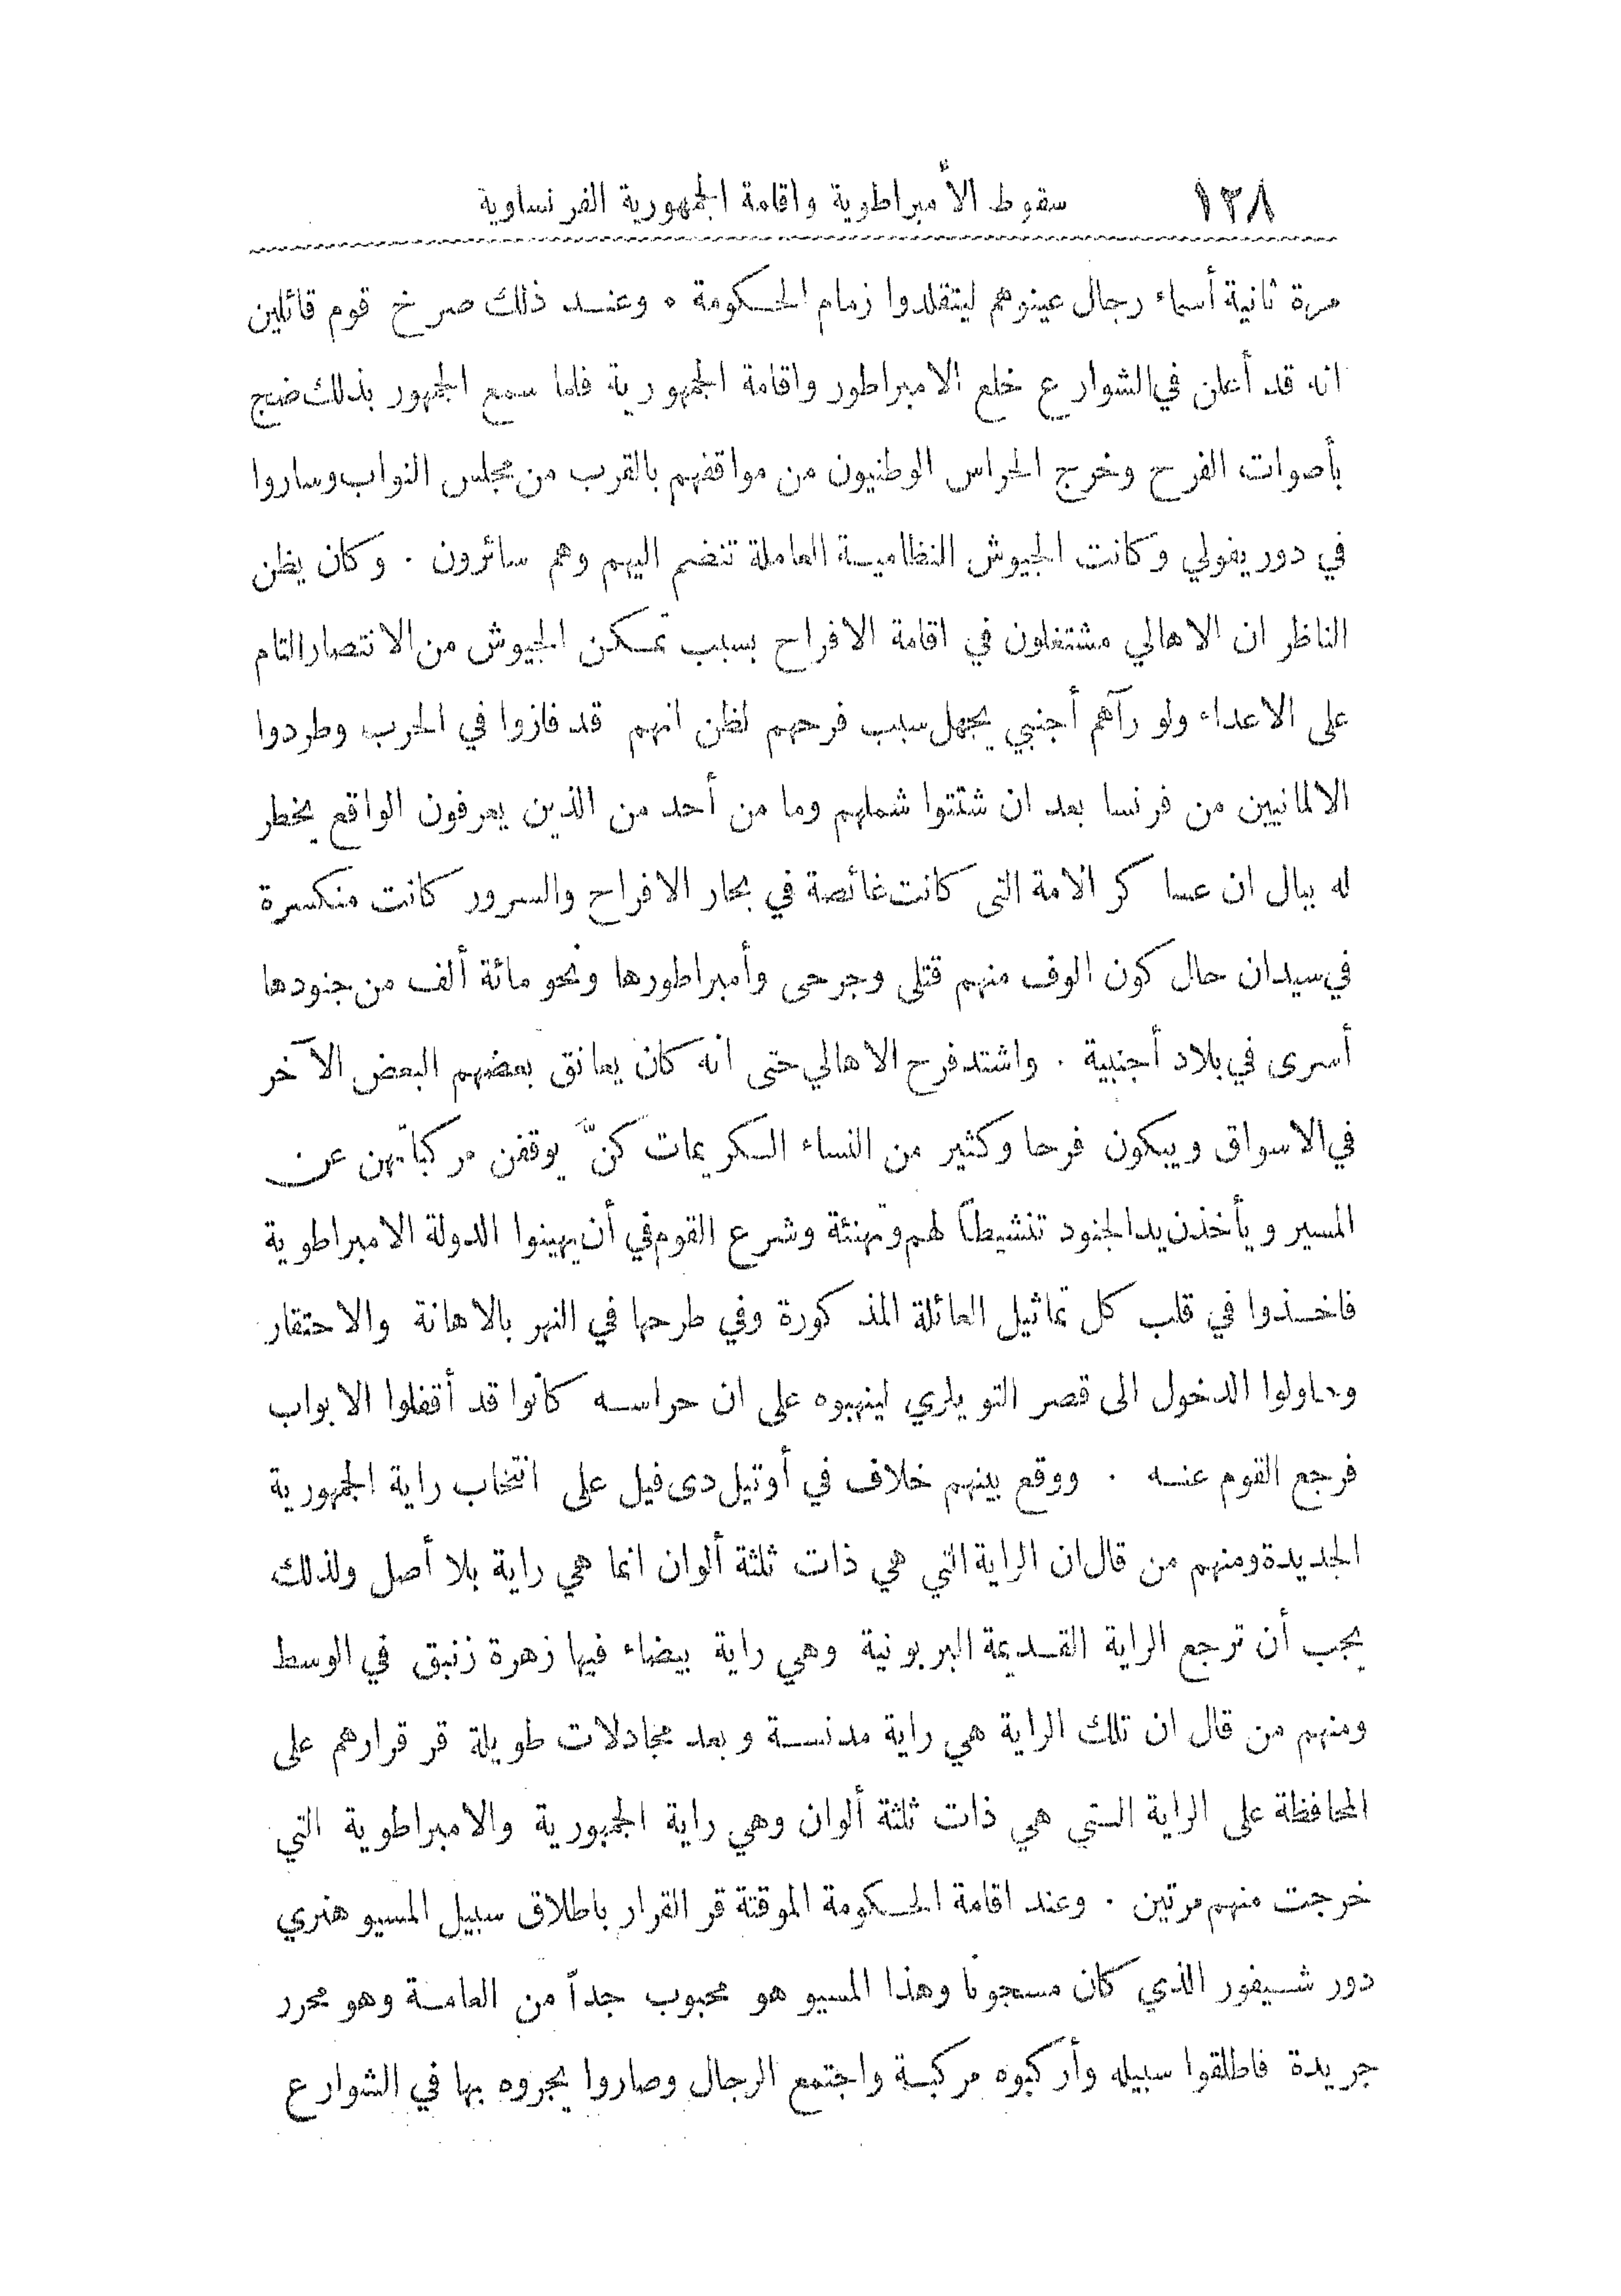 ١٢٨ سقوط الأمبراطوية واقامة الجمهورية الفرنساوية
مرة ثانية أسماء رجال عينوهم ليتقلدوا زمام الحكومة ٠ وعند ذلك صرخ قوم قائلين
انه قد أعلن في الشوارع خلع الامبراطور واقامة الجمهورية فلما سمع الجمهور بذلك ضج
بأصوات الفرح وخرج الحراس الوطنيون من مواقفهم بالقرب من مجلس النواب وساروا
في دور يفولي وكانت الجيوش النظامية العاملة تنضم اليهم وهم سائرون ٠ وكان يظن
الناظر ان الاهالي مشتغلون في اقامة الافراح بسبب تمكن الجيوش من الانتصار التام
على الاعداء ولو رآهم أجنبي يجهل سبب فرحهم لظن انهم قد فازوا في الحرب وطردوا
الالمانيين من فرنسا بعد ان شتتوا شملهم وما من أحد من الذين يعرفون الواقع يخطر
له ببال ان عساكر الامة التى كانت غائصة في بحار الافراح والسرور كانت منكسرة
في سيدان حال كون الوف منهم قتلى وجرحى وأمبراطورها ونحو مائة ألف من جنودها
أسرى في بلاد أجنبية ٠ واشتد فرح الاهالي حتى انه كان يعانق بعضهم البعض الآخر
في الاسواق ويبكون فرحا وكثير من النساء الكريمات كنّ يوقفن مركباتهن عن
المسير ويأخذن يد الجنود تنشيطاً لهم وتهنئة وشرع القوم في أن يهينوا الدولة الامبراطوية
فاخذوا في قلب كل تماثيل العائلة المذكورة وفي طرحها في النهر بالاهانة والاحتقار
وحاولوا الدخول الى قصر التويلري لينهبوه على ان حراسه كانوا قد أقفلوا الابواب
فرجع القوم عنه ٠ ووقع بينهم خلاف في أوتيل دى فيل على انتخاب راية الجمهورية
الجديدة ومنهم من قال ان الراية التي هي ذات ثلثة ألوان انما هي راية بلا أصل ولذلك
يجب أن ترجع الراية القديمة البربونية وهي راية بيضاء فيها زهرة زنبق في الوسط
ومنهم من قال ان تلك الراية هي راية مدنسة وبعد مجادلات طويلة قر قرارهم على
المحافظة على الراية التي هي ذات ثلثة ألوان وهي راية الجمهورية والامبراطوية التي
خرجت منهم مرتين ٠ وعند اقامة الحكومة الموقتة قر القرار باطلاق سبيل المسيو هنري
دور شيفور الذي كان مسجونا وهذا المسيو هو محبوب جداً من العامة وهو محرر
جريدة فاطلقوا سبيله وأركبوه مركبة واجتمع الرجال وصاروا يجروه بها في الشوارع